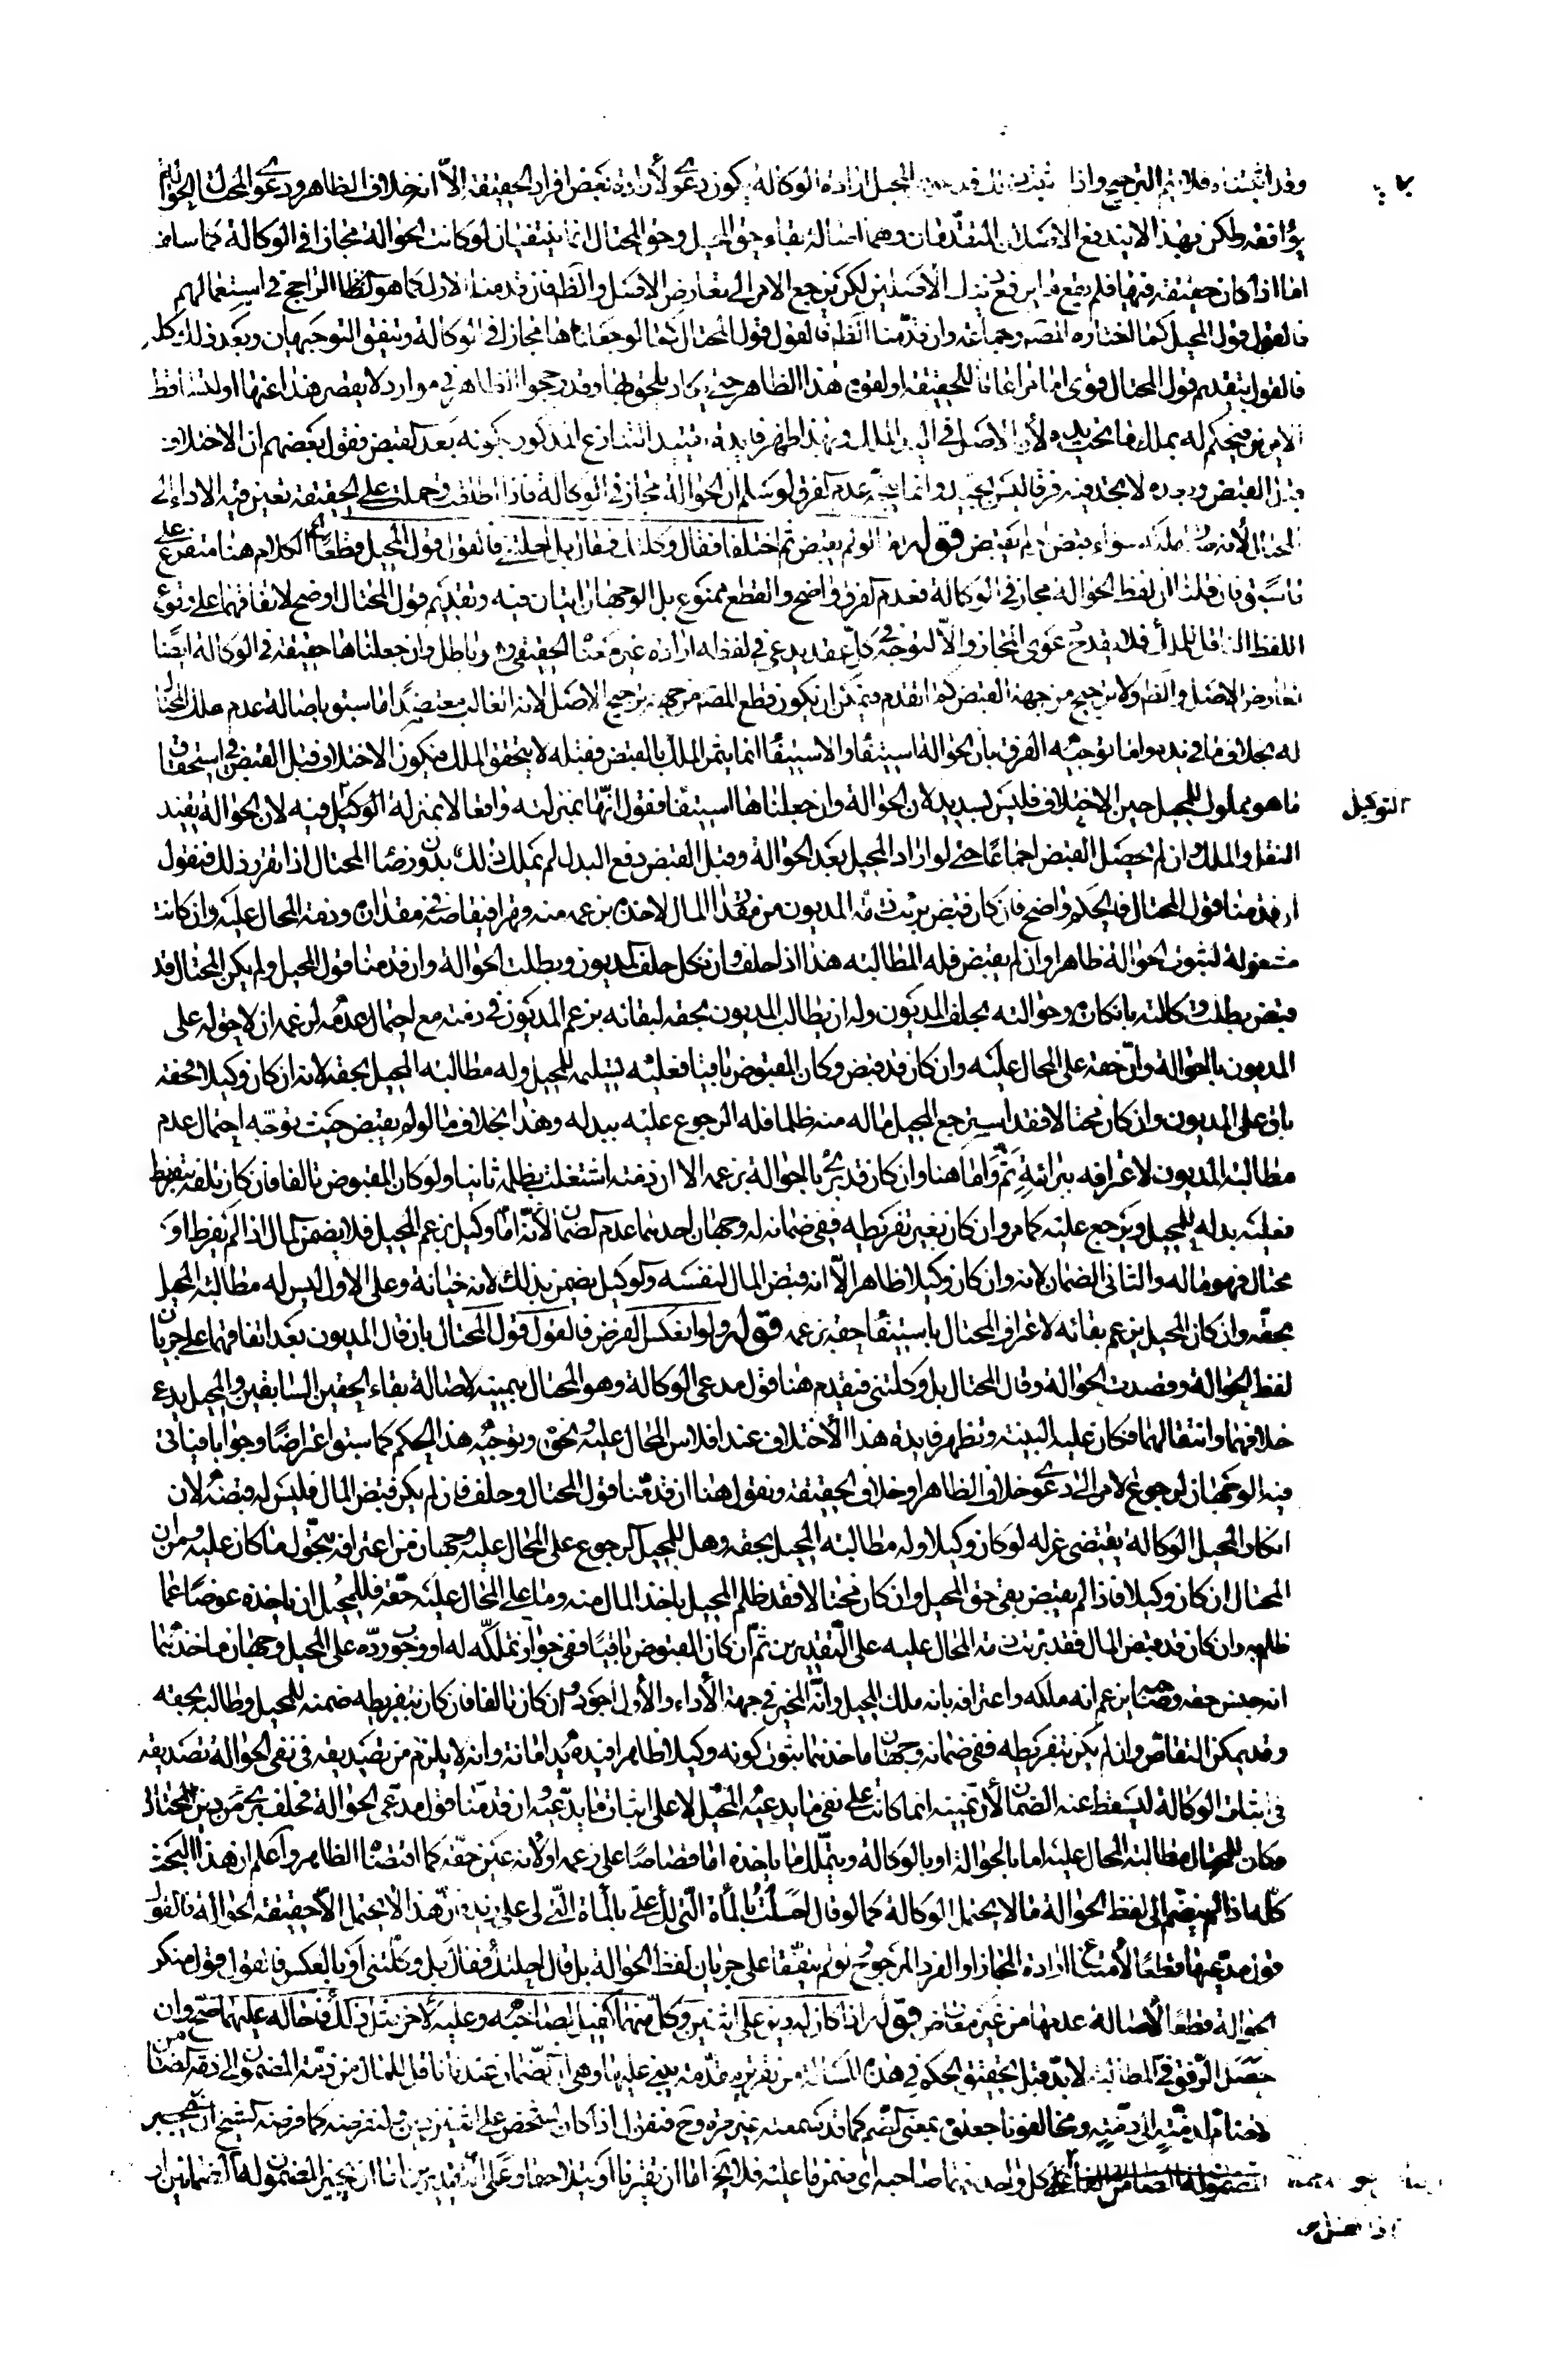 وقد اثبتناه فلا يتم الترجيح واذا فدعوى المحيل ارادة الوكالة يكون دعوى لأرادة بعض افراد الحقيقة الّا انه خلاف الظاهر ودعوى المحتال الحوالة
يوافقه ولكن بهذا لا يندفع الاصلان المتقدمان وهما اصالة بقاء حق المحيل وحق المحتال انما ينتفيان لو كانت الحوالة مجازا في الوكالة كما سلف
امّا اذا كان حقيقة فيها فلم يقع ما يرفع تلك الاصلين لكن يرجع الامر الى تعارض الاصل والظ فان قدمنا الاول كما هو الراجح في استعمالهم
فالقول قول المحيل كما اختاره المصه وجماعة وان قدّمنا الظ فالقول قول المحتال كما لو جعلناها مجازا في الوكالة ويتفق التوجيهان وبعد ذلك كله
فالقول بتقديم قول المحتال قوى اما مراعاة للحقيقة او لقوة هذا الظاهر حتى يكاد يلحق بها وقد رجحوا الظاهر في موارد لا يقصر هذا عنها او لتساقط
الامرين فيحكم له بملك ما تحت يده لأن الاصل في اليد الملك وبهذا ظهر فايدة تقييد التنازع المذكور بكونه بعد القبض فقول بعضهم ان الاختلاف
قبل القبض وبعده لا يجد فيه فرقا ليس بجيد وانما يتجه عدم الفرق لو سلم ان الحوالة مجاز في الوكالة فاذا اطلقت وحملت على الحقيقة تعين فيه الاداء الى
المحتال لأنه ملكه سواء قبض ام لم يقبض قوله اما لو لم يقبض ثم اختلفا فقال وكلتك فقال بل احلتنى فالقول قول المحيل قطعا الكلام هنا متفرع على
ما سبق فان قلنا ان لفظ الحوالة مجاز في الوكالة فعدم الفرق واضح والقطع ممنوع بل الوجهان اتيان فيه وتقديم قول المحتال اوضح لاتفاقهما على وقوع
اللفظ الناقل للملك فلا يقدح دعوى المجاز والّا لتوجّه في كلّ عقد يدعى في لفظه ارادة غير معناه الحقيقى وهو باطل وان جعلناها حقيقة في الوكالة ايضا
تعارض الاصل والظ ولا ترجيح من جهة القبض كما تقدم فيمكن ان يكون قطع المصه من جهة ترجيح الاصل لانه الغالب معتضدا بما سبق باصالة عدم ملك المحتال
له بخلاف ما في يده واما توجيه الفرق بان الحوالة استيفاء والاستيفاء انما يثمر الملك بالقبض فقبله لا يتحقق الملك فيكون الاختلاف قبل القبض في استحقاق
ما هو مملوك للمحيل حين الاختلاف فليس بسديد لان الحوالة وان جعلناها استيفاء فقول انها بمنزلته واقعا لا بمنزلة الوكيل فيه لان الحوالة يفيد
التوكيل
النقل والملك وان لم يحصل القبض اجماعًا حتى لو اراد المحيل بعد الحوالة وقبل القبض دفع البدل لم يملك ذلك بدون رضا المحتال اذا تقرر ذلك فنقول
ان قدمنا قول المحتال فالحكم واضح فان كان قبض برئت ذمة المديون من هذا المال لاخذه بزعمه منه وقهرا فيتقاص في مقداره وذمة المحال عليه وان كانت
مشغولة لثبوت الحوالة ظاهرا وان لم يقبض فله المطالبة هذا اذا حلف وان نكل حلف المديون وبطلت الحوالة وان قدمنا قول المحيل ولم يكن المحتال قد
قبض بطلت وكالته بانكاره وحوالته بحلف المديون وله ان يطالب المديون بحقه لبقائه بزعم المديون في ذمته مع احتمال عدمه لزعمه ان لا حق له على
المديون بالحوالة وأنّ حقه على المحال عليه وان كان قد قبض وكان المقبوض باقيا فعليه تسليمه للمحيل وله مطالبة المحيل بحقه لانه ان كان وكيلا فحقه
باق على المديون وان كان محتالا فقد استرجع المحيل ماله منه ظلما فله الرجوع عليه ببدله وهذا بخلاف ما لو لم يقبض حيث توجّه احتمال عدم
مطالبة المديون لاعترافه ببرائته ثَمّ وامّا هنا وان كان قد برئ بالحوالة بزعمه الا ان ذمته اشتغلت بظلمه ثانيا ولو كان المقبوض تالفا فان كان تلفه بتفريط
فعليه بدله للمحيل ويرجع عليه كما مر وان كان بغير تفريطه ففى ضمانه له وجهان احدهما عدم الضمان لأنّه امّا وكيل بزعم المحيل فلا يضمن المال اذا لم يفرط او
محتال فهو ماله والثانى الضمان لانه وان كان وكيلا ظاهرا الّا انه قبض المال لنفسه والوكيل يضمن بذلك لانه خيانة وعلى الاول ليس له مطالبة المحيل
بحقّه وان كان المحيل يزعم بقائه لاعتراف المحتال باستيفاء حقه بزعمه قوله ولو انعكس الفرض فالقول قول المحتال بان قال المديون بعد اتفاقهما على جريان
لفظ الحوالة وقصدت الحوالة وقال المحتال بل وكلتنى فيقدم هنا قول مدعى الوكالة وهو المحتال بيمينه لاصالة بقاء الحقين السابقين والمحيل يدعى
خلافهما وانتقالهما فكان عليه البينة وتظهر فايدة هذا الأختلاف عند افلاس المحال عليه ونحوه وتوجيه هذا الحكم كما سبق اعتراضًا وجوابا فياتى
فيه الوجهان لرجوع الامر الى دعوى خلاف الظاهر او خلاف الحقيقة ونقول هنا ان قدّمنا قول المحتال وحلف فان لم يكن قبض المال فليس له قبضه لان
انكار المحيل الوكالة يقتضى عزله لو كان وكيلا وله مطالبة المحيل بحقه وهل للمحيل الرجوع على المحال عليه وجهان من اعترافه بتحول ما كان عليه ومن ان
المحتال ان كان وكيلا فاذا لم يقبض بقى حق المحيل وان كان محتالا فقد ظلم المحيل باخذ المال منه وما على المحال عليه حقه فللمحيل ان ياخذه عوضًا عما
ظلم به وان كان قد قبض المال فقد برئت ذمة المحال عليه على التقديرين ثم ان كان المقبوض باقيًا ففى جواز تملّكه له او وجوب ردّه على المحيل وجهان ماخذهما
انه جنس حقه وصاحبه يزعم انه ملكه واعترافه بانه ملك المحيل وانّه المخير في جهة الأداء والأول اجود وان كان تالفا فان كان بتفريطه ضمنه للمحيل وطالبه بحقه
وقد يمكن التقاص وان لم يكن بتفريطه ففى ضمانه وجهان ماخذهما ثبوت كونه وكيلا ظاهرا فيده يد امانة وانه لا يلزم من تصديقه في نفى الحوالة تصديقه
في اثبات الوكالة ليسقط عنه الضمان لأن يمينه انما كانت على نفى ما يدعيه المحيل لا على اثبات ما يدّعيه وان قدّمنا قول مدّعى الحوالة فحلف برئ من دين المحتال
وكان للمحتال مطالبة المحال عليه اما بالحوالة او بالوكالة ويتملك ما ياخذه اما قصاصًا على زعمه او لانه عين حقّه كما اقتضاه الظاهر واعلم ان هذا البحث
كلّه اذا لم ينضم الى لفظ الحوالة ما لا يحتمل الوكالة كما لو قال احلتك بالمأة التى لك علىّ بالمأة التى لى على زيد فان هذا لا يحتمل الّا حقيقة الحوالة فالقول
قول مدّعيها قطعًا لأمتناع ارادة المجاز او الفرد المرجوح ولو لم يتفقا على جريان لفظ الحوالة بل قال احلتك فقال بل وكلتنى او بالعكس فالقول قول منكر
الحوالة قطعًا لأصالة عدمها من غير معارض قوله اذا كان له دين على اثنين وكلّ منهما كفيل لصاحبه وعليه لاخر مثل ذلك فاحاله عليهما صح وان
حصل الرفق في المطالبة لا بدّ قبل تحقيق الحكم في هذه المسئلة من تقرير مقدّمة يبنى عليها وهى ان الضمان عندنا ناقل للمال من ذمّة المضمون الى ذمة الضامن
ومخالفونا جعلوه بمعنى الضم كما قد سمعته غير مرة وح فنقول اذا كان لشخص على اثنين دين ولنفرضه كما فرضه الشيخ
كل واحد منهما صاحبه اى ضمن ما عليه فلا يخ اما ان يقترنا او يتلاحقا وعلى التقديرين اما ان يجيز المضمون له الضمانين